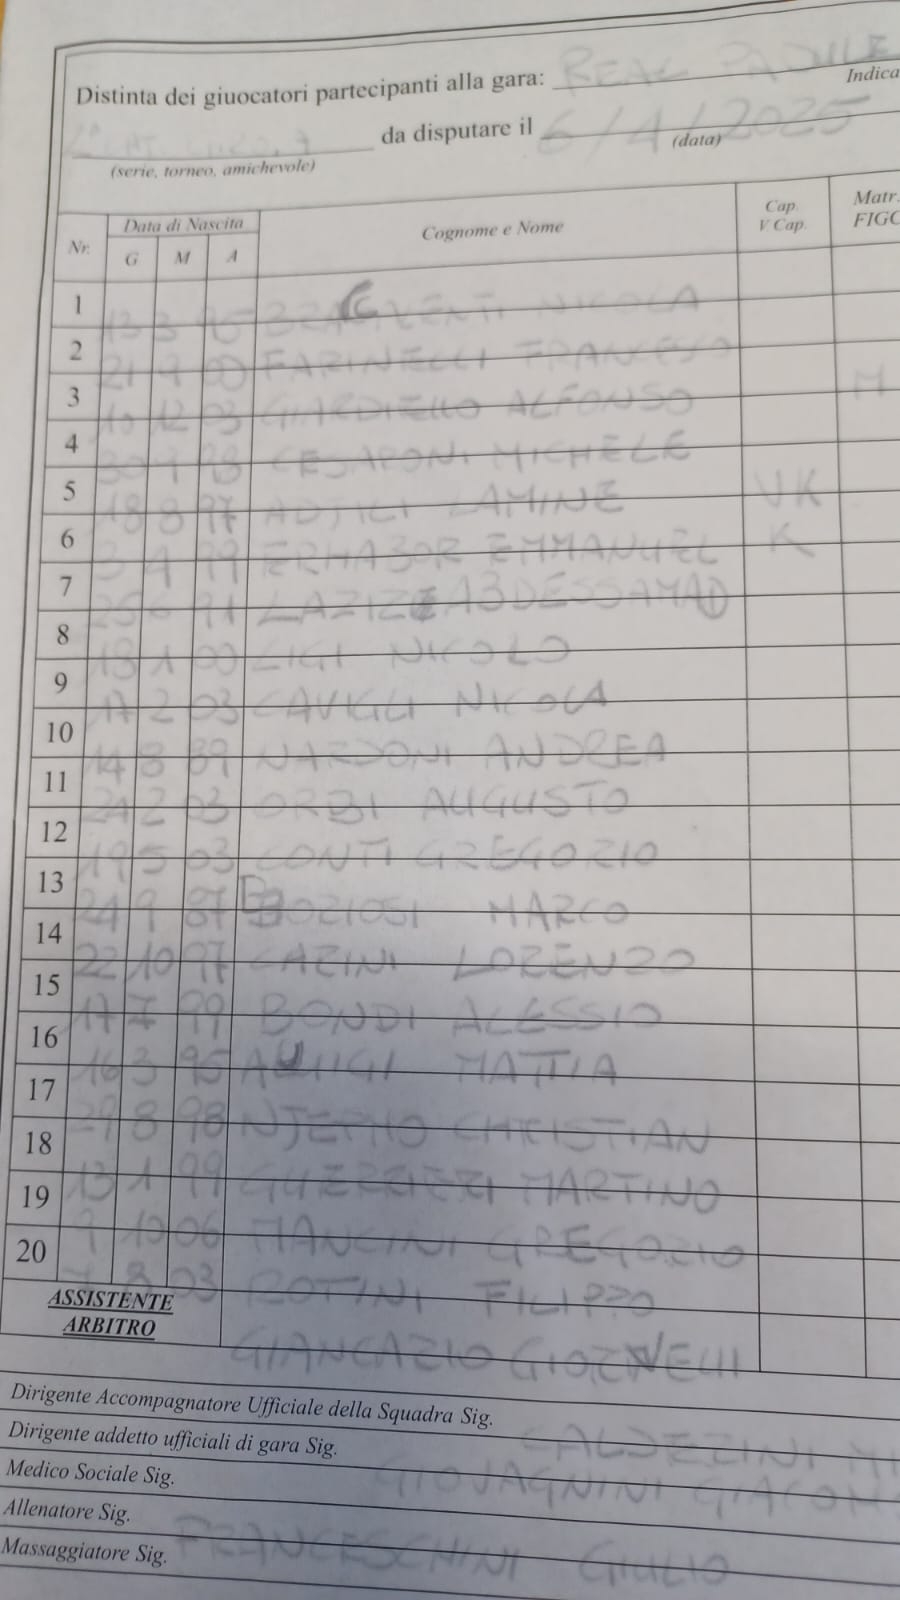 Distinta dei giuocatori partecipanti alla gara: REAL PADULE
Indica
da disputare il 6/4/2025
(serie, torneo, amichevole) (data)
Nr. Data di Nascita Cognome e Nome Cap. V Cap. Matr. FIGC
G M A
1 13 3 95 NICOLA
2 21 9 00 FARINELLI FRANCESCO
3 10 12 03 GIARDIELLO ALFONSO M
4 30 9 98 CESARONI MICHELE
5 18 8 97 LAMINE VK
6 3 4 99 ERHABOR EMMANUEL K
7 25 6 91 ABDESSAMAD
8 13 1 00 LIGI NICOLO
9 17 2 03 CAVIGLI NICOLA
10 14 8 89 NARDONI ANDREA
11 24 2 03 ORBI AUGUSTO
12 19 5 03 CONTI GREGORIO
13 24 9 87 MARCO
14 22 10 97 CARINI LORENZO
15 17 7 99 BONDI ALESSIO
16 16 3 95 ALUIGI MATTIA
17 29 8 98 CHRISTIAN
18 13 1 99 GUERRIERI MARTINO
19 9 10 06 MANCINI GREGORIO
20 8 03 ROTINI FILIPPO
ASSISTENTE
ARBITRO
Dirigente Accompagnatore Ufficiale della Squadra Sig.
Dirigente addetto ufficiali di gara Sig. CALDERINI MI
Medico Sociale Sig. GIOVAGNINI GIACOM
Allenatore Sig.
Massaggiatore Sig. FRANCESCHINI GIULIO